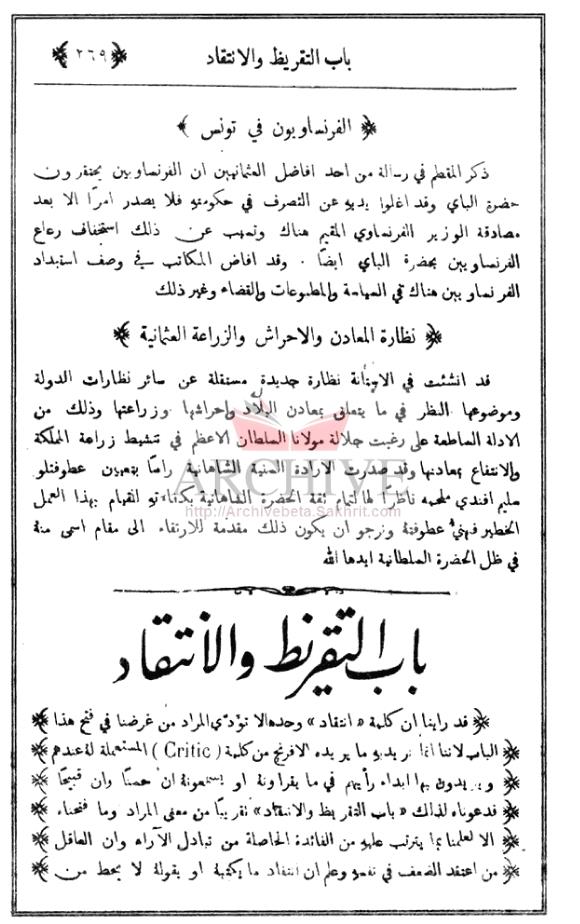 باب التقريظ والانتقاد
﴿ ٢٦٩ ﴾
﴿ الفرنساويون في تونس ﴾
ذكر المقطم في رسالة من احد افاضل العثمانيين ان الفرنساويين يحتقرون
حضرة الباي وقد اغلوا يديه عن التصرف في حكومته فلا يصدر امرًا الا بعد
مصادقة الوزير الفرنساوي المقيم هناك وتسبب عن ذلك استخفاف رعاع
الفرنساويين بحضرة الباي ايضًا . وقد افاض المكاتب في وصف استبداد
الفرنساويين هناك في السياسة والمطبوعات والقضاء وغير ذلك
﴿ نظارة المعادن والاحراش والزراعة العثمانية ﴾
قد انشئت في الاستانة نظارة جديدة مستقلة عن سائر نظارات الدولة
وموضوعها النظر في ما يتعلق بمعادن البلاد واحراشها وزراعتها وذلك من
الادلة الساطعة على رغبت جلالة مولانا السلطان الاعظم في تنشيط زراعة المملكة
والانتفاع بمعادنها وقد صدرت الارادة السنية الشاهانية راسًا بتعيين عطوفتلو
سليم افندي ملحمه ناظرًا لها لتمام ثقة الحضرة الشاهانية بكفاءته للقيام بهذا العمل
الخطير فنهنيُّ عطوفتة ونرجو ان يكون ذلك مقدمة للارتقاء الى مقام اسمى منة
في ظل الحضرة السلطانية ايدها الله
ARCHIVE
http://Archivebeta.Sakhrit.com
باب التقريظ والانتقاد
﴿ قد راينا ان كلمة « انتقاد » وحدها لا تؤدي المراد من غرضنا في فتح هذا ﴾
﴿ الباب لاننا انما نريد به ما يريده الافرنج من كلمة ( Critic ) المستعملة لة عندهم ﴾
﴿ ويريدون بها ابداء رأيهم في ما يقراونة او يسمعونة انْ حسنًا وان قبيحًا ﴾
﴿ فدعوناه لذلك « باب التقريظ والانتقاد» تقريبًا من معنى المراد وما فتحناه ﴾
﴿ الا لعلمنا بما يترتب عليه من الفائدة الحاصلة من تبادل الآراء وان العاقل ﴾
﴿ من اعتقد الضعف في نفسه وعلم ان انتقاد ما يكتبة او يقولة لا يحط من ﴾